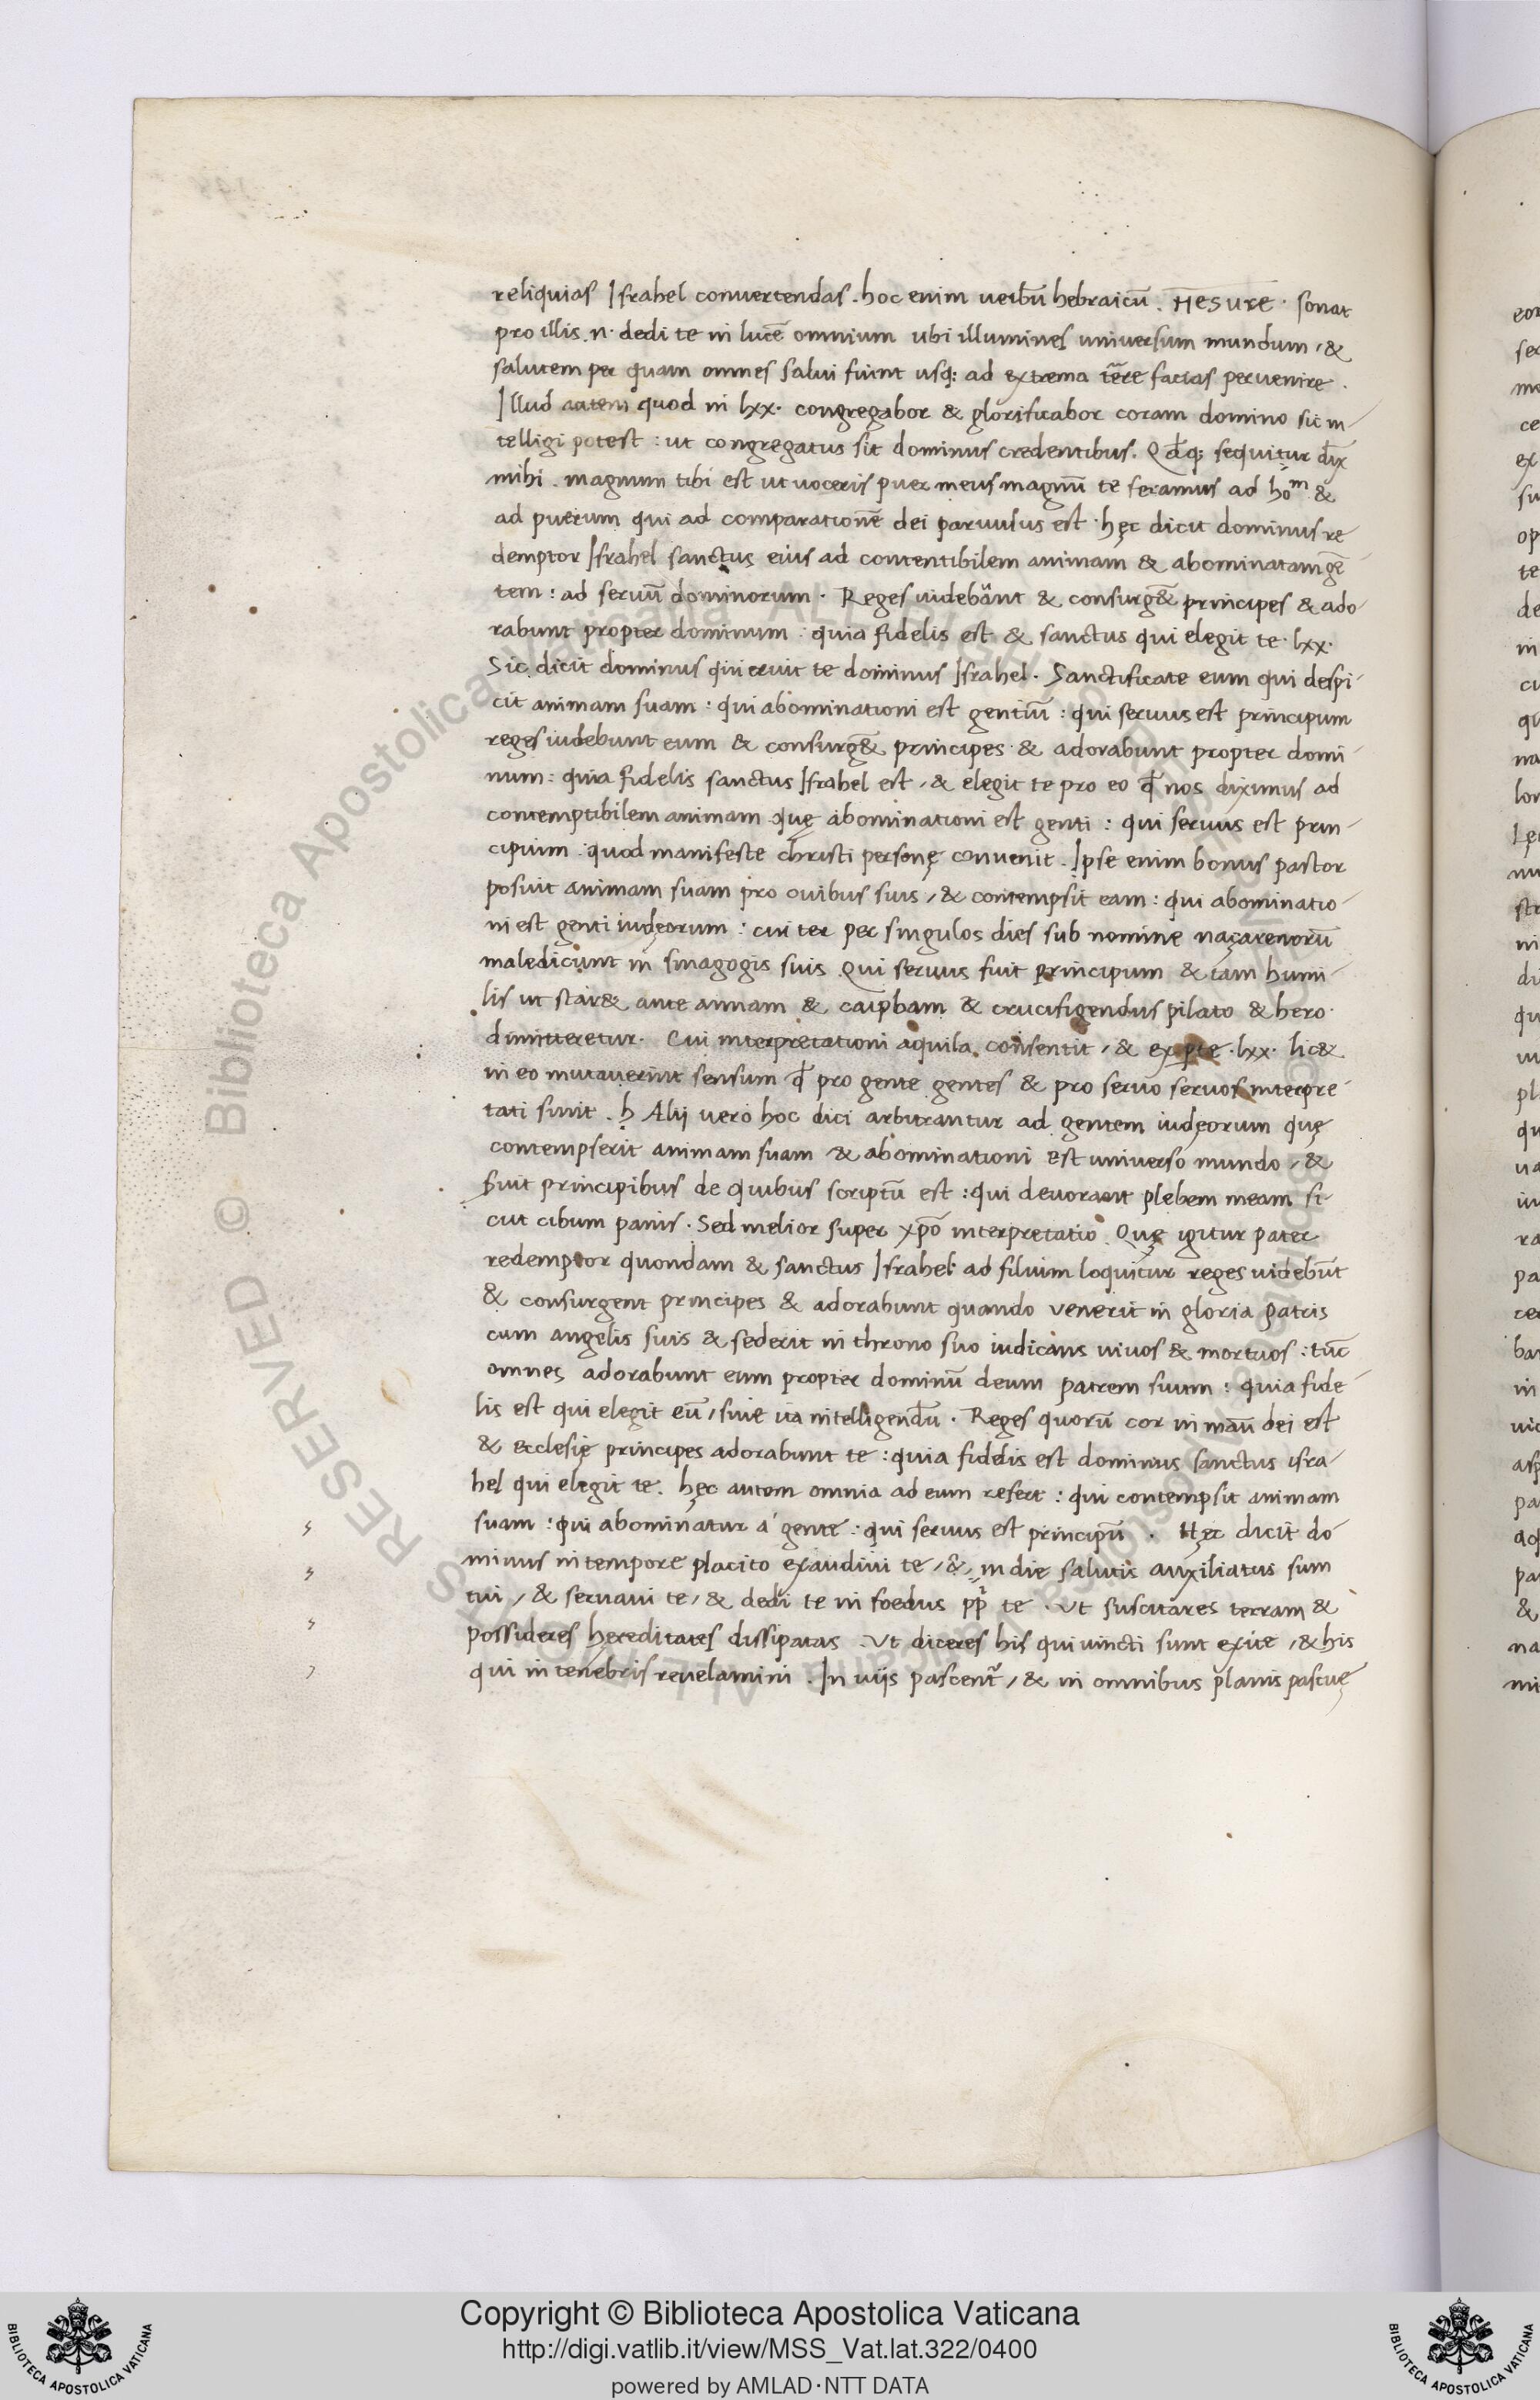 reliquias Israhel convertendas. hoc enim verbū hebraicū. HESURE· sonat
pro illis .n· dedi te in lucē omnium ubi illumines universum mundum, &
salutem per quam omnes salui fiunt usq; ad extrema terre facias pervenire.
Illud autem quod in lxx· congregabor & glorificabor coram domino sic in-
telligi potest: ut congregatus sit dominus credentibus. Qdq; sequitur dix
mihi. magnum tibi est ut voceris puer meus magnū te feramus ad hom &
ad puerum qui ad comparationē dei parvulus est· hęc dicit dominus re
demptor Israhel sanctus eius ad contentibilem animam & abominatam gē
tem: ad servū dominorum· Reges videbant & consurg& principes & ado-
rabunt propter dominum: quia fidelis est & sanctus qui elegit te· lxx·
Sic dicit dominus qui eruit te dominus Israhel· Sanctificate eum qui despi-
cit animam suam: qui abominationi est gentiū: qui servus est principum
reges videbunt eum & consurg& principes & adorabunt propter domi-
num: quia fidelis sanctus Israhel est, & elegit te pro eo qd nos diximus ad
contemptibilem animam quę abominationi est genti: qui servus est prin-
cipium· quod manifeste christi personę convenit. Ipse enim bonus pastor
posuit animam suam pro ovibus suis, & contempsit eam: qui abominatio-
ni est genti iudęorum: cui ter per singulos dies sub nomine naçarenorū
maledicunt in sinagogis suis Qui servus fuit principum & tam humi-
lis ut star& ante annam & caipham & crucifigendus pilato & hero·
dimitteretur· Cui interpretationi aquila consentit, & ex pte· lxx· lic&
in eo mutaverint sensum qd pro gente gentes & pro servo servos interpre-
tati sunt. h Alij vero hoc dici arbitrantur ad gentem iudęorum quę
contempserit animam suam & abominationi est universo mundo, &
fuit principibus de quibus scriptū est: qui devorant plebem meam si-
cut cibum panis· Sed melior super xpo interpretatio. Quę igitur pater
redemptor quondam & sanctus Israhel: ad filium loquitur reges videbūt
& consurgent principes & adorabunt quando venerit in gloria patris
cum angelis suis & sederit in throno suo iudicans vivos & mortuos: tūc
omnes adorabunt eum propter dominū deum patrem suum: quia fide-
lis est qui elegit eū, sive ita intelligendū· Reges quorū cor in manū dei est
& ecclesię principes adorabunt te: quia fidelis est dominus sanctus isra-
hel qui elegit te. hęc autem omnia ad eum refert: qui contempsit animam
suam: qui abominatur a gente: qui servus est principū· Hęc dicit do-
minus in tempore placito exaudivi te, & in die salutis auxiliatus sum
tui, & servavi te, & dedi te in foedus pp te· Ut suscitares terram &
possideres hereditates dissipatas. Ut diceres his qui vincti sunt exite, & his
qui in tenebris revelamini. In viis pascent, & in omnibus planis pascuę
Copyright © Biblioteca Apostolica Vaticana
http://digi.vatlib.it/view/MSS_Vat.lat.322/0400
powered by AMLAD·NTT DATA
BIBLIOTECA APOSTOLICA VATICANA
BIBLIOTECA APOSTOLICA VATICANA